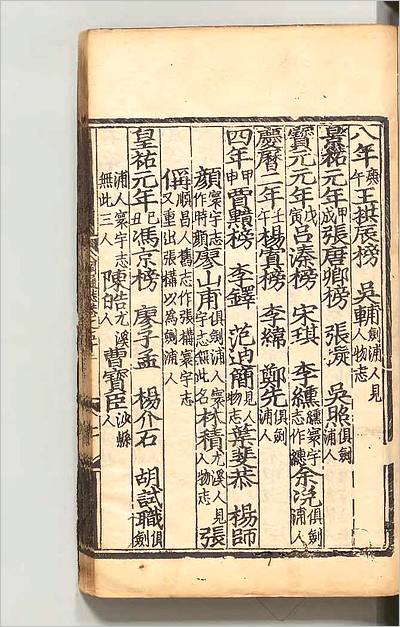 八年庚午王拱辰榜 吳輔劍浦人見人物志
景祐元年甲戌張唐卿榜 張凝 吳照俱劍浦人
寶元元年戊寅呂溱榜 宋琪 李纁纁寰宇志作纏余浼俱劍浦人
慶曆二年壬午楊寘榜 李綿 鄭先俱劍浦人
四年甲申賈黯榜 李鐸 范迪簡見人物志葉棐恭 楊師
顏寰宇志作時顏廖山甫俱劍浦人寰宇志無此名林積尤溪人見人物志 張
偁順昌人舊志作張構寰宇志又重出張構以為劍浦人
皇祐元年己丑馮京榜 廖子孟 楊介石 胡試職俱劍
浦人寰宇志無此三人 陳皓尤溪人曹寶臣沙縣人